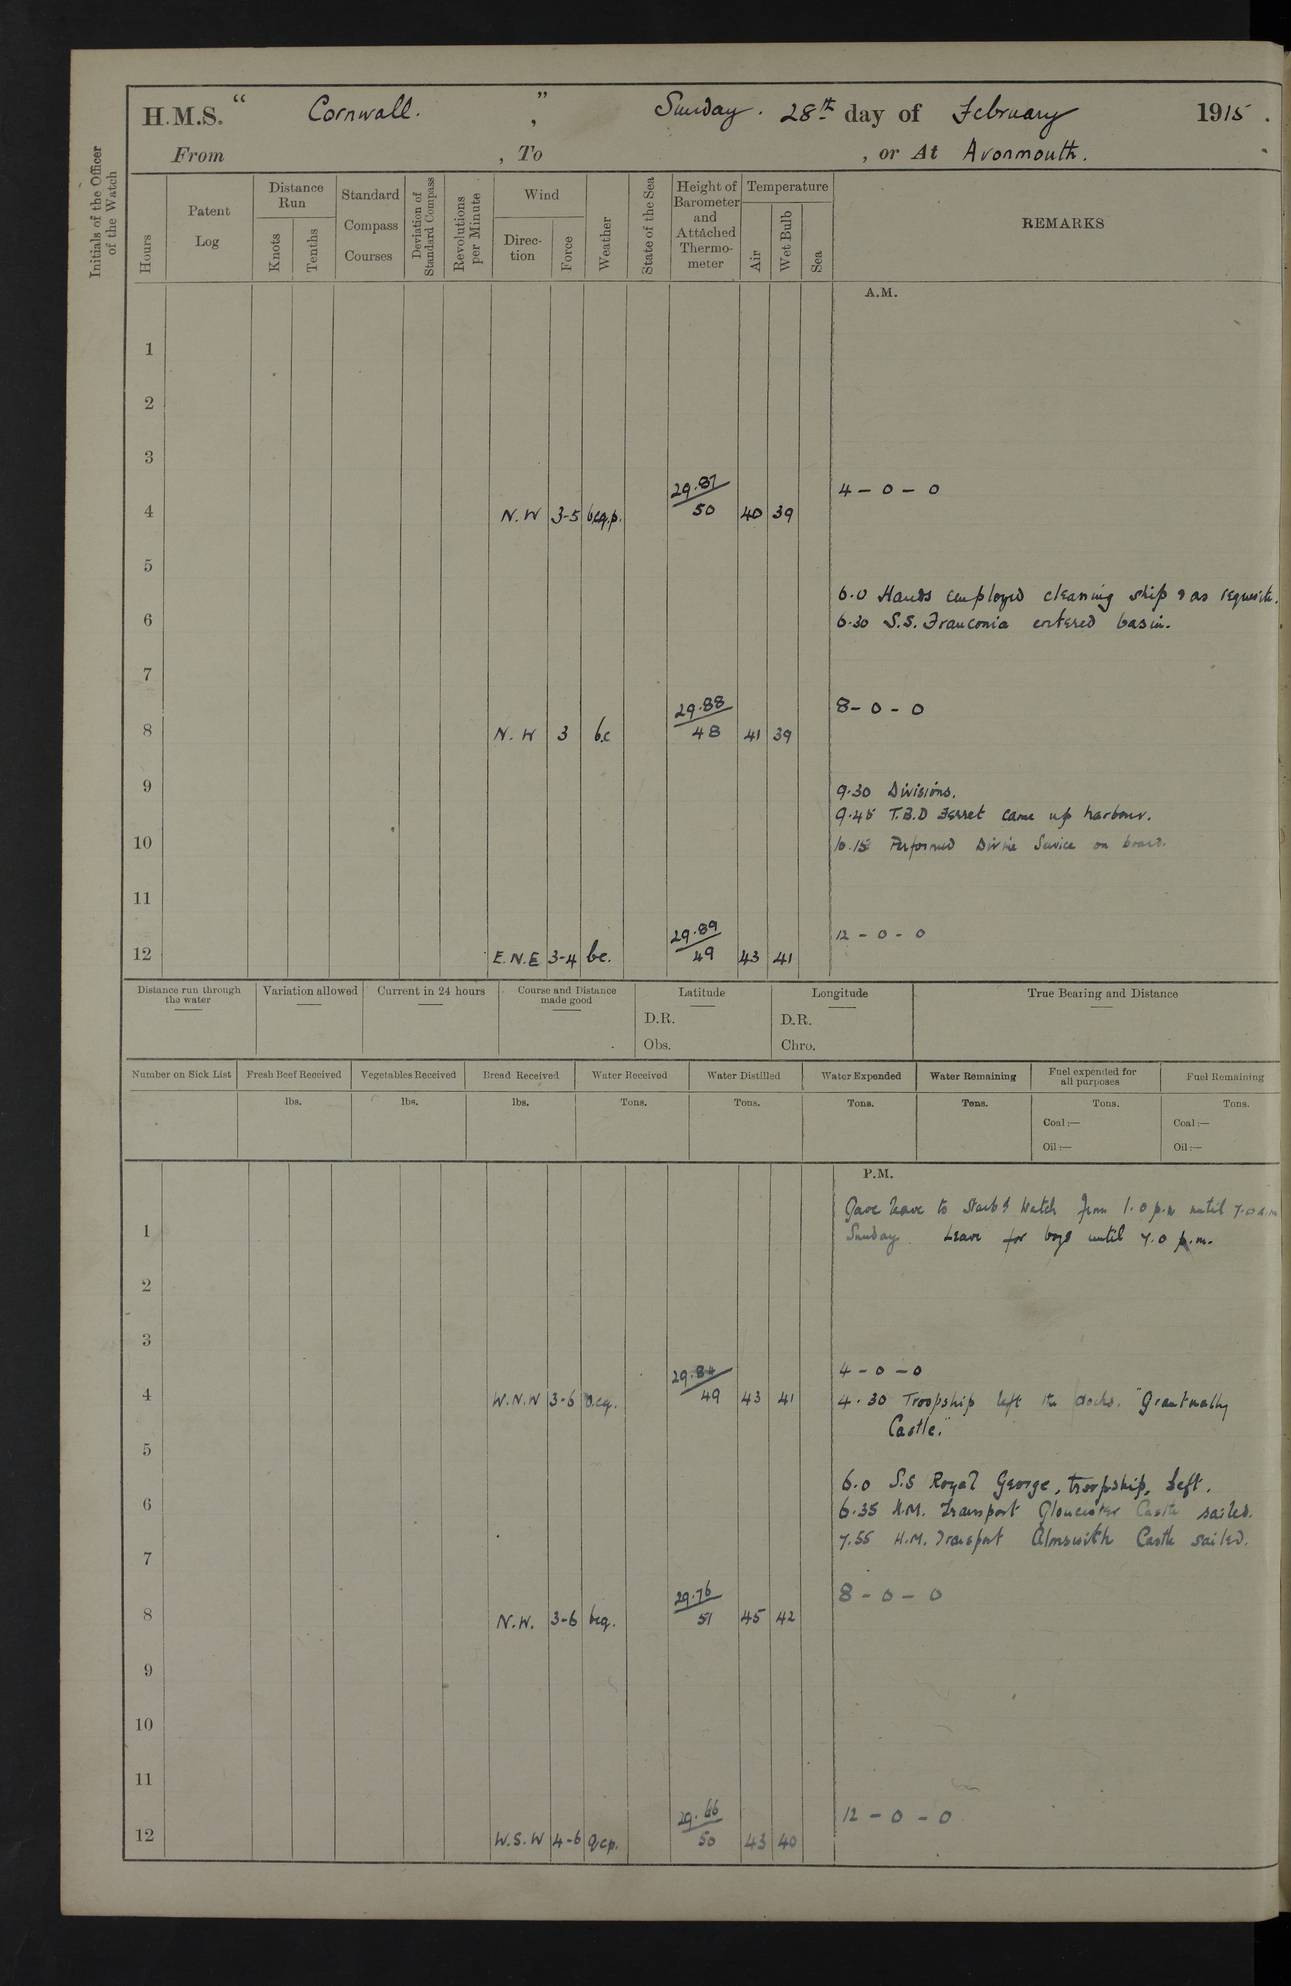 H.M.S. " Cornwall. ", Sunday. 28th day of February 1915.
From , To , or At Avonmouth.
Initials of the Officer of the Watch
Hours
Patent Log
Distance Run
Knots
Tenths
Standard Compass Courses
Deviation of Standard Compass
Revolutions per Minute
Wind
Direc-tion
Force
Weather
State of the Sea
Height of Barometer and Attached Thermo-meter
Temperature
Air
Wet Bulb
Sea
REMARKS
A.M.
1
2
3
29.87
4 – 0 – 0
4 N.W 3-5 bcq.p. 50 40 39
5
6.0 Hands employed cleaning ship & as requisite.
6
6.30 S.S. Franconia entered basin.
7
29.88
8 – 0 – 0
8 N.W 3 b.c 48 41 39
9
9.30 Divisions.
9.45 T.B.D Ferret came up harbour.
10
10.15 Performed Divine Service on board.
11
29.89
12 – 0 – 0
12 E.N.E 3-4 bc. 49 43 41
Distance run through the water
Variation allowed
Current in 24 hours
Course and Distance made good
Latitude
D.R.
Obs.
Longitude
D.R.
Chro.
True Bearing and Distance
Number on Sick List
Fresh Beef Received
Vegetables Received
Bread Received
Water Received
Water Distilled
Water Expended
Water Remaining
Fuel expended for all purposes
Fuel Remaining
lbs. lbs. lbs. Tons. Tons. Tons. Tons. Tons. Tons.
Coal :— Coal :—
Oil :— Oil :—
P.M.
Gave leave to Starbd Watch from 1.0 p.m until 7.0 a.m
1
Sunday. Leave for boys until 7.0 p.m.
2
3
29.84
4 – 0 – 0
4 W.N.W 3-6 49 43 41
4.30 Troopship left the docks. "Grantully
Castle."
5
6.0 S.S Royal George, troopship, left.
6
6.35 H.M. Transport Gloucester Castle sailed.
7.55 H.M. Transport Alnwick Castle sailed.
7
29.76
8 – 0 – 0
8 N.W. 3-6 bcq. 51 45 42
9
10
11
29.66
12 – 0 – 0
12 W.S.W 4-6 qcp. 50 43 40